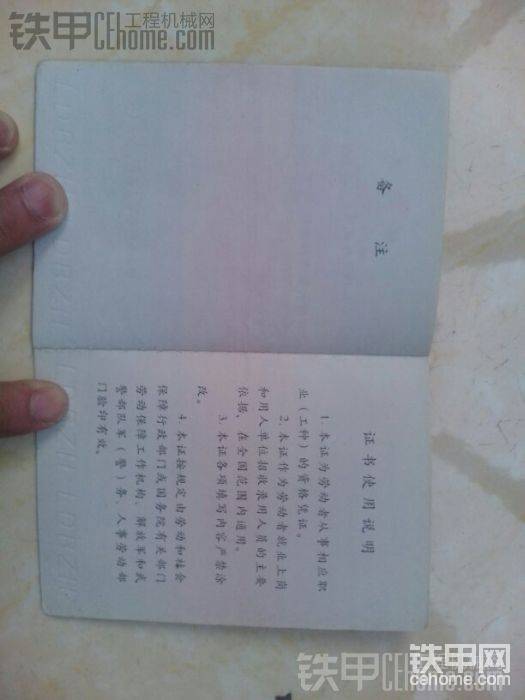 铁甲 工程机械网
CEhome.com
备 注
证书使用说明
1. 本证为劳动者从事相应职
业（工种）的资格凭证。
2. 本证作为劳动者就业上岗
和用人单位招收录用人员的主要
依据，在全国范围内通用。
3. 本证各项填写内容严禁涂
改。
4. 本证按规定由劳动和社会
保障行政部门或国务院有关部门
劳动保障工作机构、解放军和武
警部队军（警）务、人事劳动部
门验印有效。
铁甲 CEhome.com
铁甲网
cehome.com